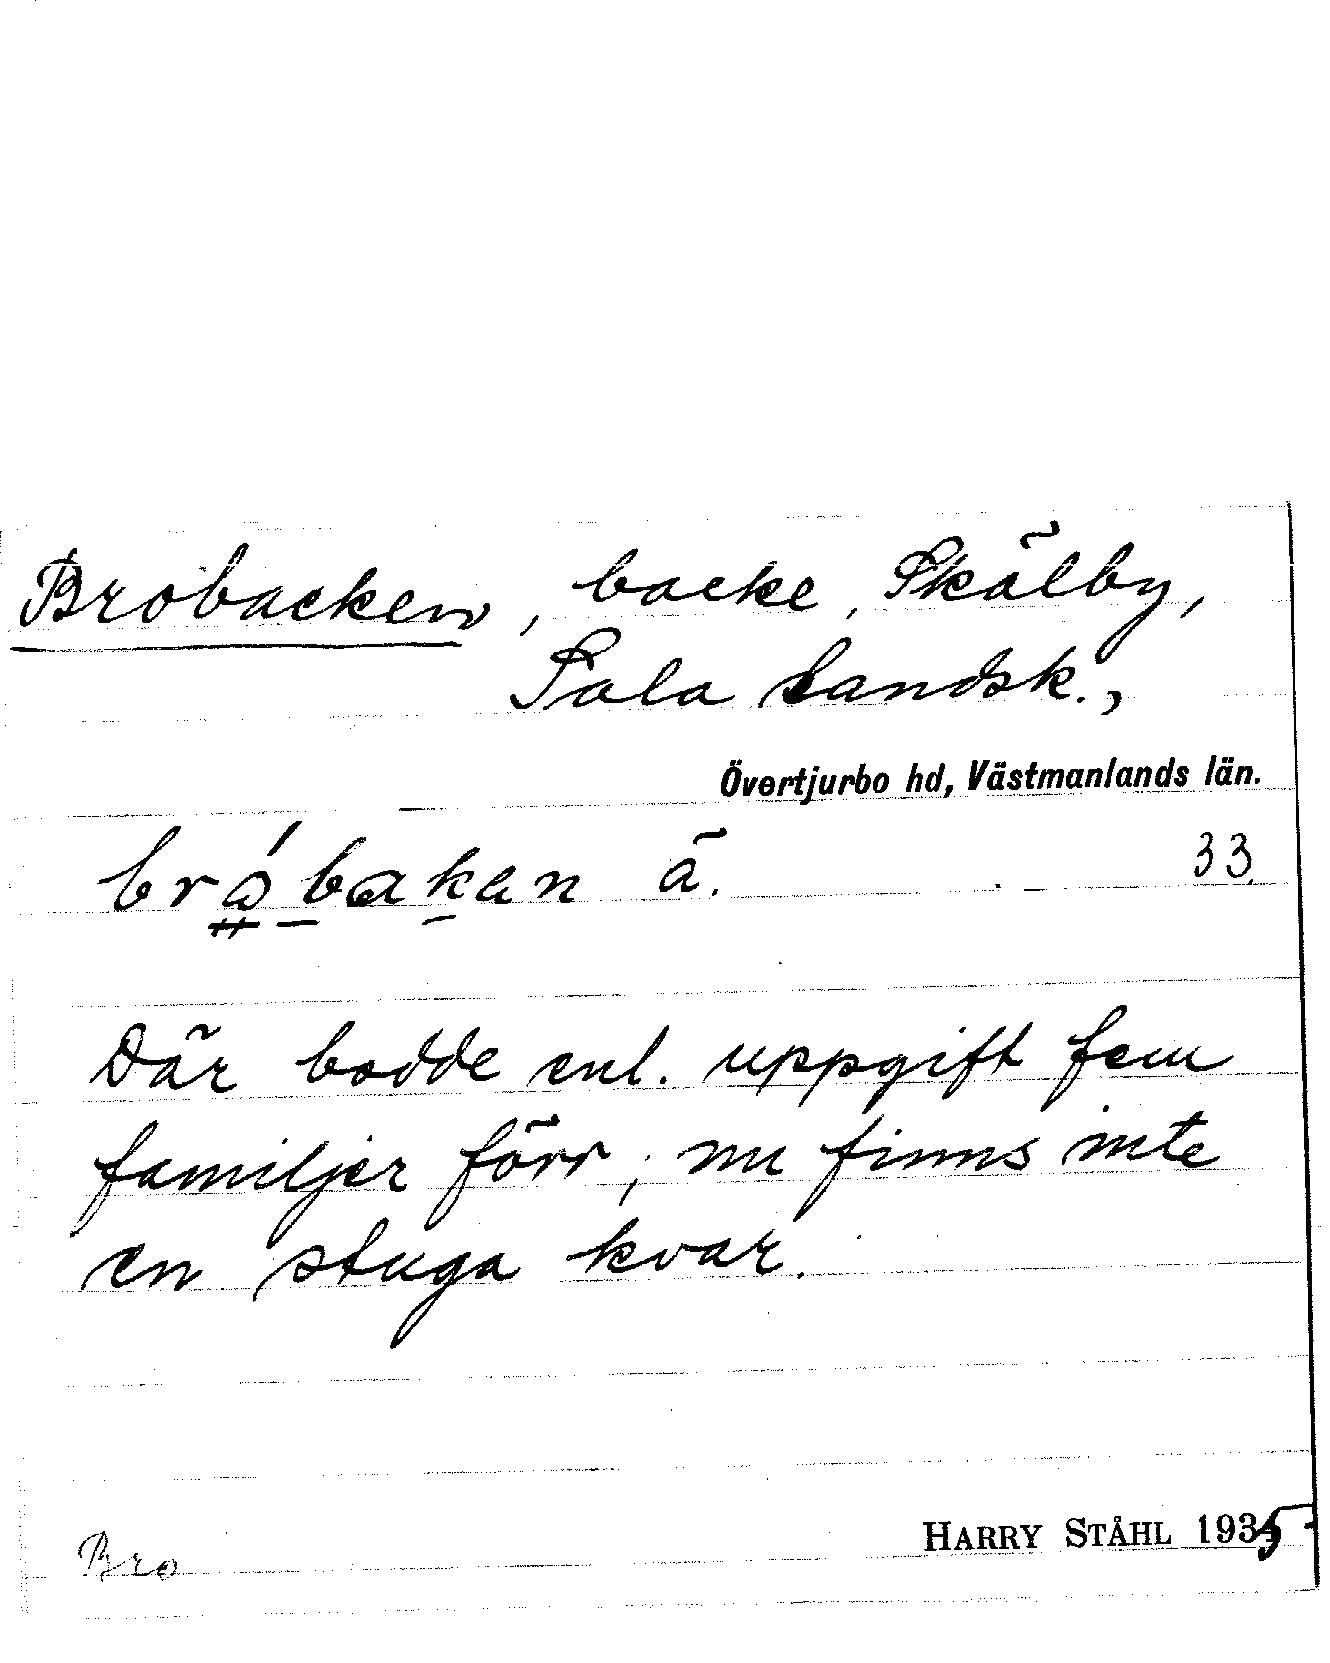 Brobacken, backe, Skälby,
Sala landsk.,
Övertjurbo hd, Västmanlands län.
bró̤bakan ä. 33.
Där bodde enl. uppgift fem
familjer förr; nu finns inte
en stuga kvar.
Bro
HARRY STÅHL 1935